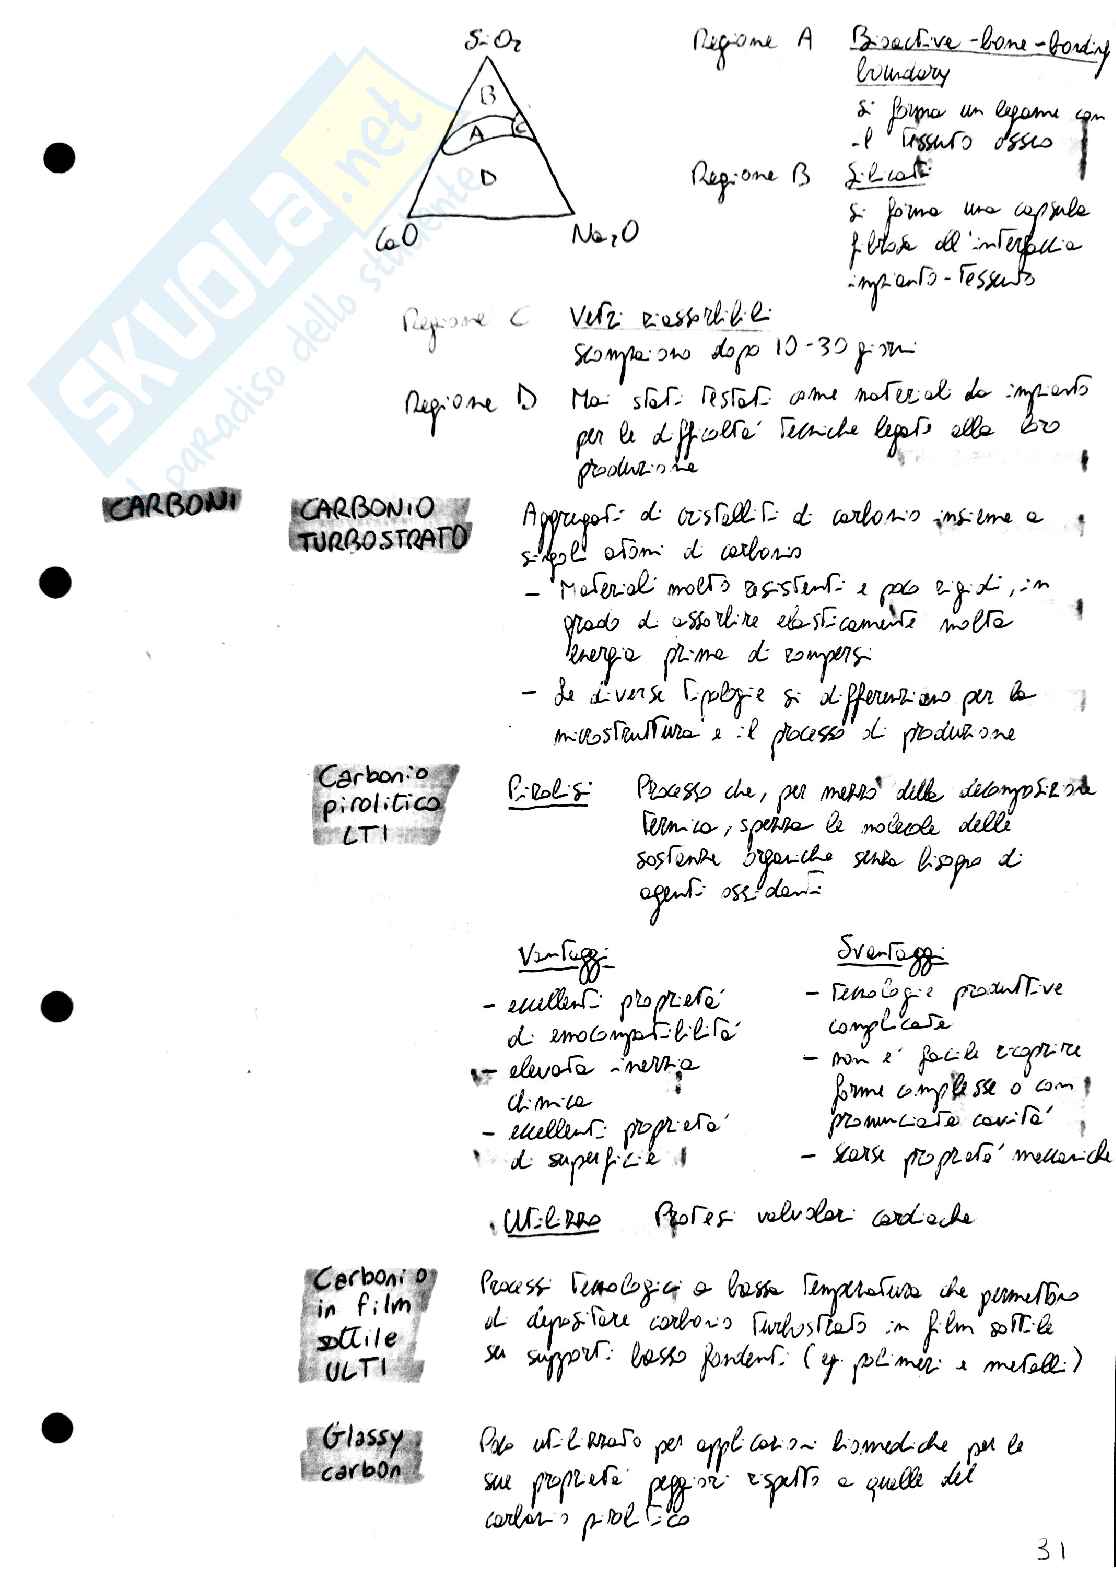 SiO2
B
A
C
D
CaO
Na2O
Regione A Bioactive-bone-bonding
boundary
si forma un legame con
il tessuto osseo
Regione B Silicati
si forma una capsula
fibrosa all'interfaccia
impianto-tessuto
Regione C Vetri riassorbibili
scompaiono dopo 10-30 giorni
Regione D Mai stati testati come materiali da impianto
per le difficoltà tecniche legate alla loro
produzione
SKUOLA.net
il paradiso dello studente
CARBONI
CARBONIO
TURBOSTRATO
Aggregati di cristalliti di carbonio insieme a
singoli atomi di carbonio
- Materiali molto resistenti e poco rigidi, in
grado di assorbire elasticamente molta
energia prima di rompersi
- Le diverse tipologie si differenziano per la
microstruttura e il processo di produzione
Carbonio
pirolitico
LTI
Pirolisi Processo che, per mezzo della decomposizione
termica, spezza le molecole delle
sostanze organiche senza bisogno di
agenti ossidanti
Vantaggi
- eccellenti proprietà
di emocompatibilità
- elevata inerzia
chimica
- eccellenti proprietà
di superficie
Svantaggi
- tecnologie produttive
complicate
- non è facile ricoprire
forme complesse o con
pronunciate cavità
- scarse proprietà meccaniche
Utilizzo Protesi valvolari cardiache
Carbonio
in film
sottile
ULTI
Processi tecnologici a bassa temperatura che permettono
di depositare carbonio turbostrato in film sottile
su supporti basso fondenti (eg polimeri e metalli)
Glassy
carbon
Poco utilizzato per applicazioni biomediche per le
sue proprietà peggiori rispetto a quelle del
carbonio pirolitico
31